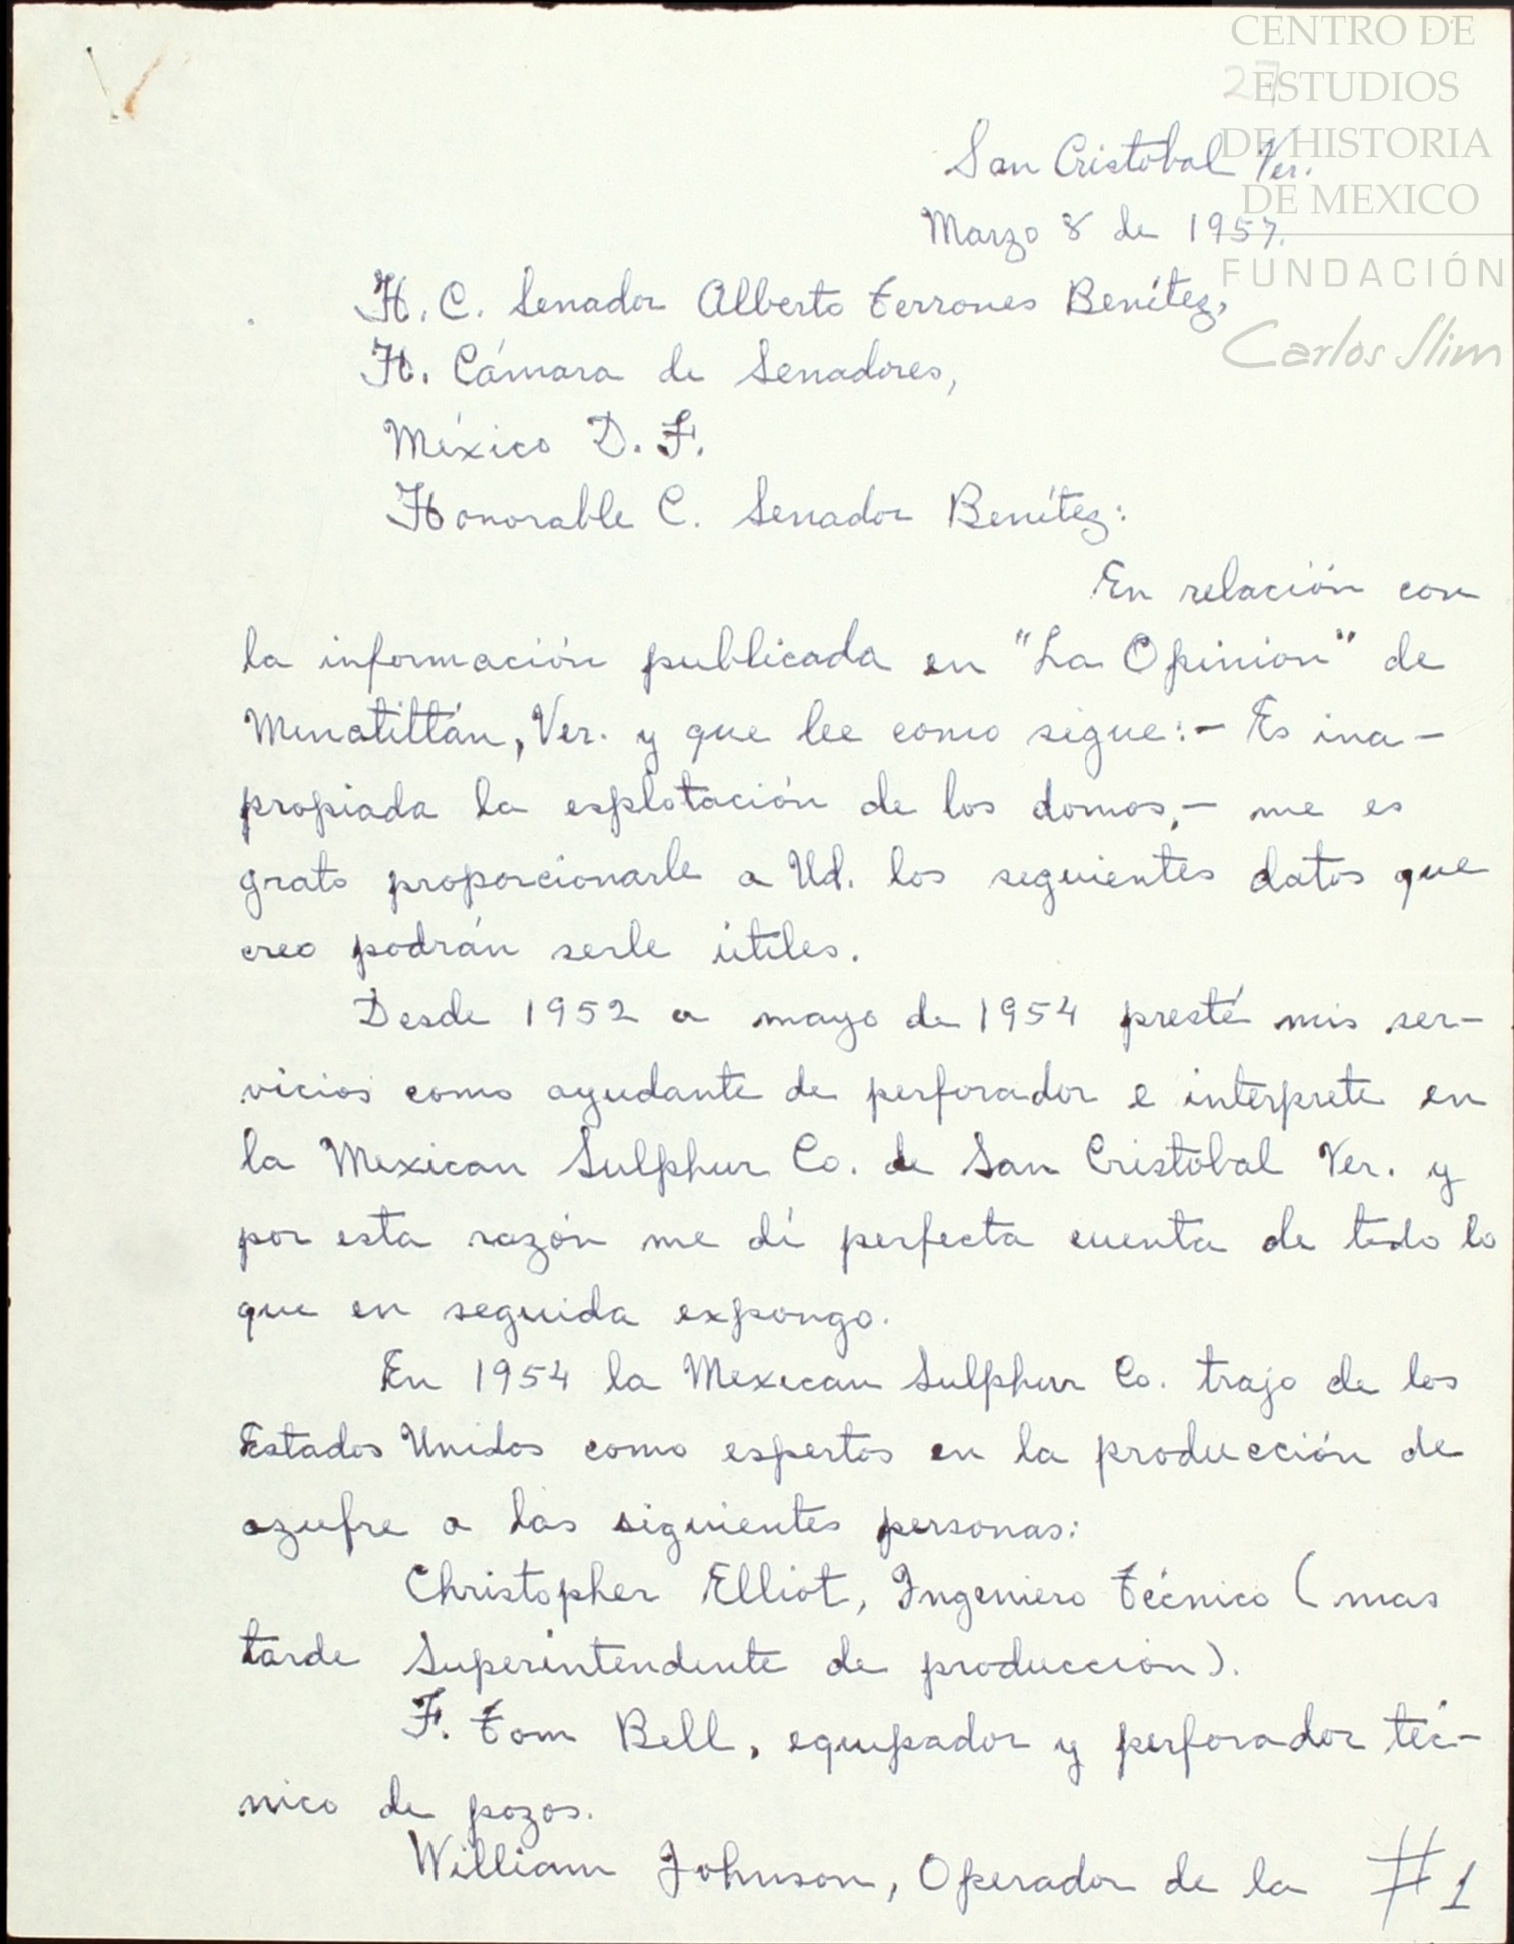 CENTRO DE
ESTUDIOS
DE HISTORIA
DE MEXICO
FUNDACIÓN
Carlos Slim
27
San Cristobal Ver.
Marzo 8 de 1957.
H. C. Senador Alberto Terrones Benítez,
H. Cámara de Senadores,
México D. F.
Honorable C. Senador Benítez:
En relación con
la información publicada en "La Opinion" de
Minatitlán, Ver. y que lee como sigue:- Es ina-
propiada la esplotación de los domos,- me es
grato proporcionarle a Ud. los seguientes datos que
creo podrán serle útiles.
Desde 1952 a mayo de 1954 presté mis ser-
vicios como ayudante de perforador e interprete en
la Mexican Sulphur Co. de San Cristóbal Ver. y
por esta razón me dí perfecta cuenta de todo lo
que en seguida expongo.
En 1954 la Mexican Sulphur Co. trajo de los
Estados Unidos como espertos en la producción de
azufre a las siguientes personas:
Christopher Elliot, Ingeniero Técnico (mas
tarde Superintendente de producción).
F. Tom Bell, equipador y perforador téc-
nico de pozos.
William Johnson, Operador de la #1